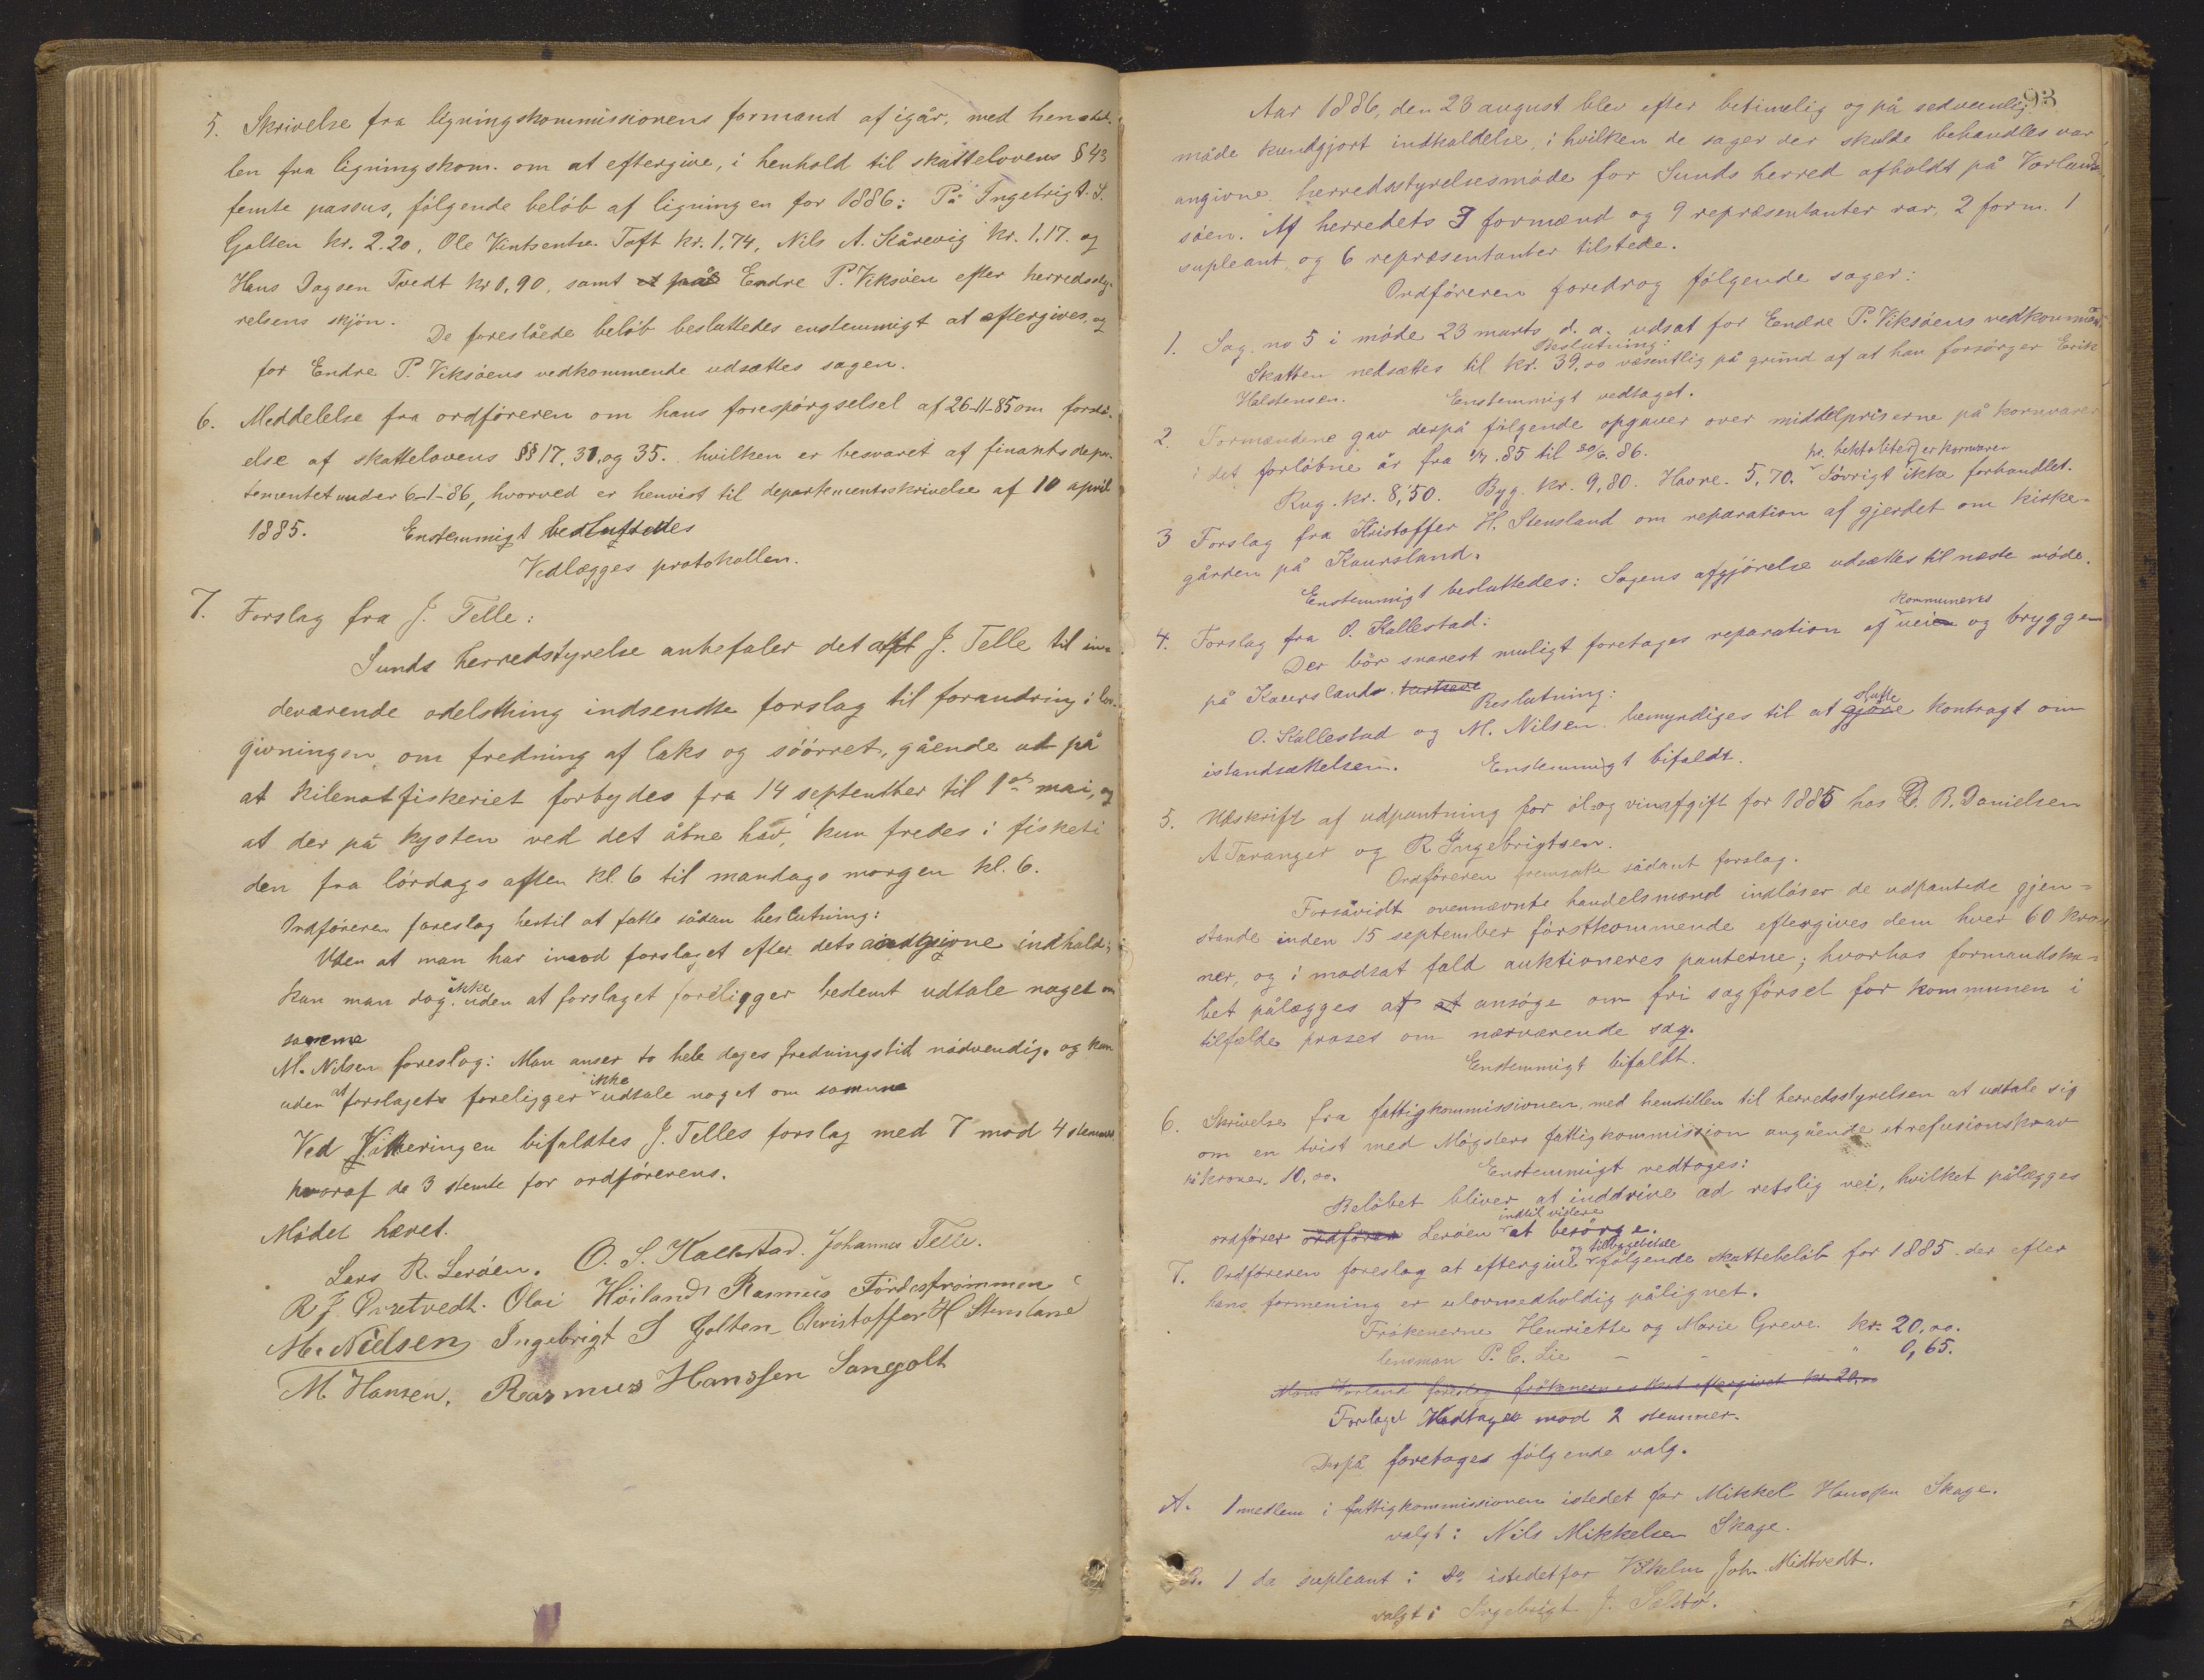 5. Skrivelse fra ligningskommissionens formand af igår, med henstil-
len fra ligningskom. om at eftergive, i henhold til skattelovens § 43
femte passus, følgende beløb af ligningen for 1886: På Ingebrigt S.
Golten kr. 2.20, Ole Vintsentse. Toft kr. 1,74, Nils A. Kårevig kr. 1.17. og
Hans Dagsen Tvedt kr 0,90, samt Endre P. Viksøen efter herredssty-
relsens skjøn.
De foreslåede beløb besluttedes enstemmigt at eftergives, og
for Endre P. Viksøens vedkommende udsættes sagen.
6. Meddelelse fra ordføreren om hans forespørgselsel af 26-11-85 om forstå-
else af skattelovens §§ 17, 31, og 35. hvilken er besvaret af finantsdepar-
tementet under 6-1-86, hvorved er henvist til departementsskrivelse af 10 april
1885. Enstemmigt besluttedes
Vedlægges protokollen.
7. Forslag fra J. Telle:
Sunds herredstyrelse anbefaler det af J. Telle til in-
deværende odelsthing indsendte forslag til forandring i lov-
givningen om fredning af laks og søørret, gående ud på
at kilenotfiskeriet forbydes fra 14 septembher til 1ste mai, og
at der på kysten ved det åbne hav, kun fredes i fisketi
den fra lørdags aften kl. 6 til mandags morgen kl. 6.
Ordføreren foreslog hertil at fatte sådan beslutning:
Uden at man har imod forslaget efter dets angivne indhold,
kan man dog ikke uden at forslaget foreligger bestemt udtale noget om
samme
M. Nilsen foreslog: Man anser to hele dages fredningstid nødvendig, og kan
uden at forslagets foreligger ikke udtale noget om samme
Ved Voteringen bifaldtes J. Telles forslag med 7 mod 4 stemmer
hvoraf de 3 stemte for ordførerens.
Mødet hævet.
Lars R. Lerøen. O. S. Kallestad. Johannes Telle.
R J. Olai Høiland Rasmus Fördestrømmen
M. Nielsen Ingebrigt S Golten Christoffer H Stensland
M Hansen. Rasmus Hanssen Sangolt
93
Aar 1886, den 23 august blev efter betimelig og på sedvanlig
måde kundgjort indkaldelse, i hvilken de sager der skulde behandles var
angivne, herredsstyrelsesmøde for Sunds herred afholdt på Vorlands-
søen. Af herredets 3 formænd og 9 repræsentanter var, 2 form. 1
supleant og 6 repræsentanter tilstede.
Ordføreren foredrog følgende sager:
1. Sag no 5 i møde 23 marts d. a. udsat for Endre P. Viksøens vedkommen.
Beslutning:
Skatten nedsættes til kr. 39,00 væsentlig på grund af at han forsørger Erik
Halstensen. Enstemmigt vedtaget.
2. Formændene gav derpå følgende opgaver over middelpriserne på kornvarer
i det forløbne år fra 1/7. 85 til 30/6. 86.
pr. hektoliter
Rug. kr. 8,50. Byg. kr. 9,80. Havre. 5,70. Iøvrigt ikke forhandlet.
3 Forslag fra Kristoffer H. Stensland om reparation af gjerdet om kirke-
gården på Kaursland.
Enstemmigt besluttedes: Sagens afgjørelse udsættes til næste møde.
4. Forslag fra O. Kallestad:
kommunens
Der bør snarest muligt foretages reparation af veien og bryggen
på Kaurslands.
Beslutning:
O. Kallestad og M. Nilsen bemyndiges til at slutte gjøre kontragt om
istandsættelsen. Enstemmigt bifaldt.
5. Udskrift af udpantning for øl- og vinafgift for 1885 hos D. B. Danielsen
A Taranger og R Ingebrigtsen.
Ordføreren fremsatte sådant forslag.
Forsåvidt ovennævnte handelsmænd indløser de udpantede gjen-
stande inden 15 september førstkommende eftergives dem hver 60 kro-
ner, og i modsat fald auktioneres panterne; hvorhos formandska-
bet pålægges at at ansøge om fri sagførsel for kommunen i
tilfælde prozes om nærværende sag.
Enstemmigt bifaldt.
6. Skrivelse fra fattigkommissionen, med henstillen til herredsstyrelsen at udtale sig
om en tvist med Møgsters fattigkommission angående et refusionskrav
på kroner. 10,00. Enstemmigt vedtoges:
Beløbet bliver at inddrive ad retslig vei, hvilket pålægges
ordfører ordfører Lerøen indtil videre at besørge.
7. Ordføreren foreslog at eftergive og tilbagebetale følgende skattebeløb for 1885 der efter
hans formening er ulovmedholdig pålignet.
Frøkenerne Henriette og Marie Greve. kr. 20,00.
lensman P. C. Lie - - " 0,65.
Mons Vorland foreslog frøknernes skat eftergivet kr. 20,00
Forslaget Vedtages mod 2 stemmer.
Derpå foretoges følgende valg.
A. 1 medlem i fattigkommissionen istedet for Mikkel Hanssen Skage.
valgt: Nils Mikkelsen Skage.
B. 1 do supleant i do istedetfor Vilhelm Joh. Midtvedt.
valgt: Ingebrigt J. Selstø.